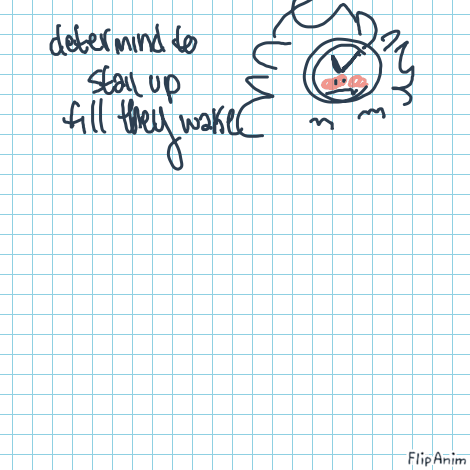 determind to
stail up
till they wake
FlipAnim